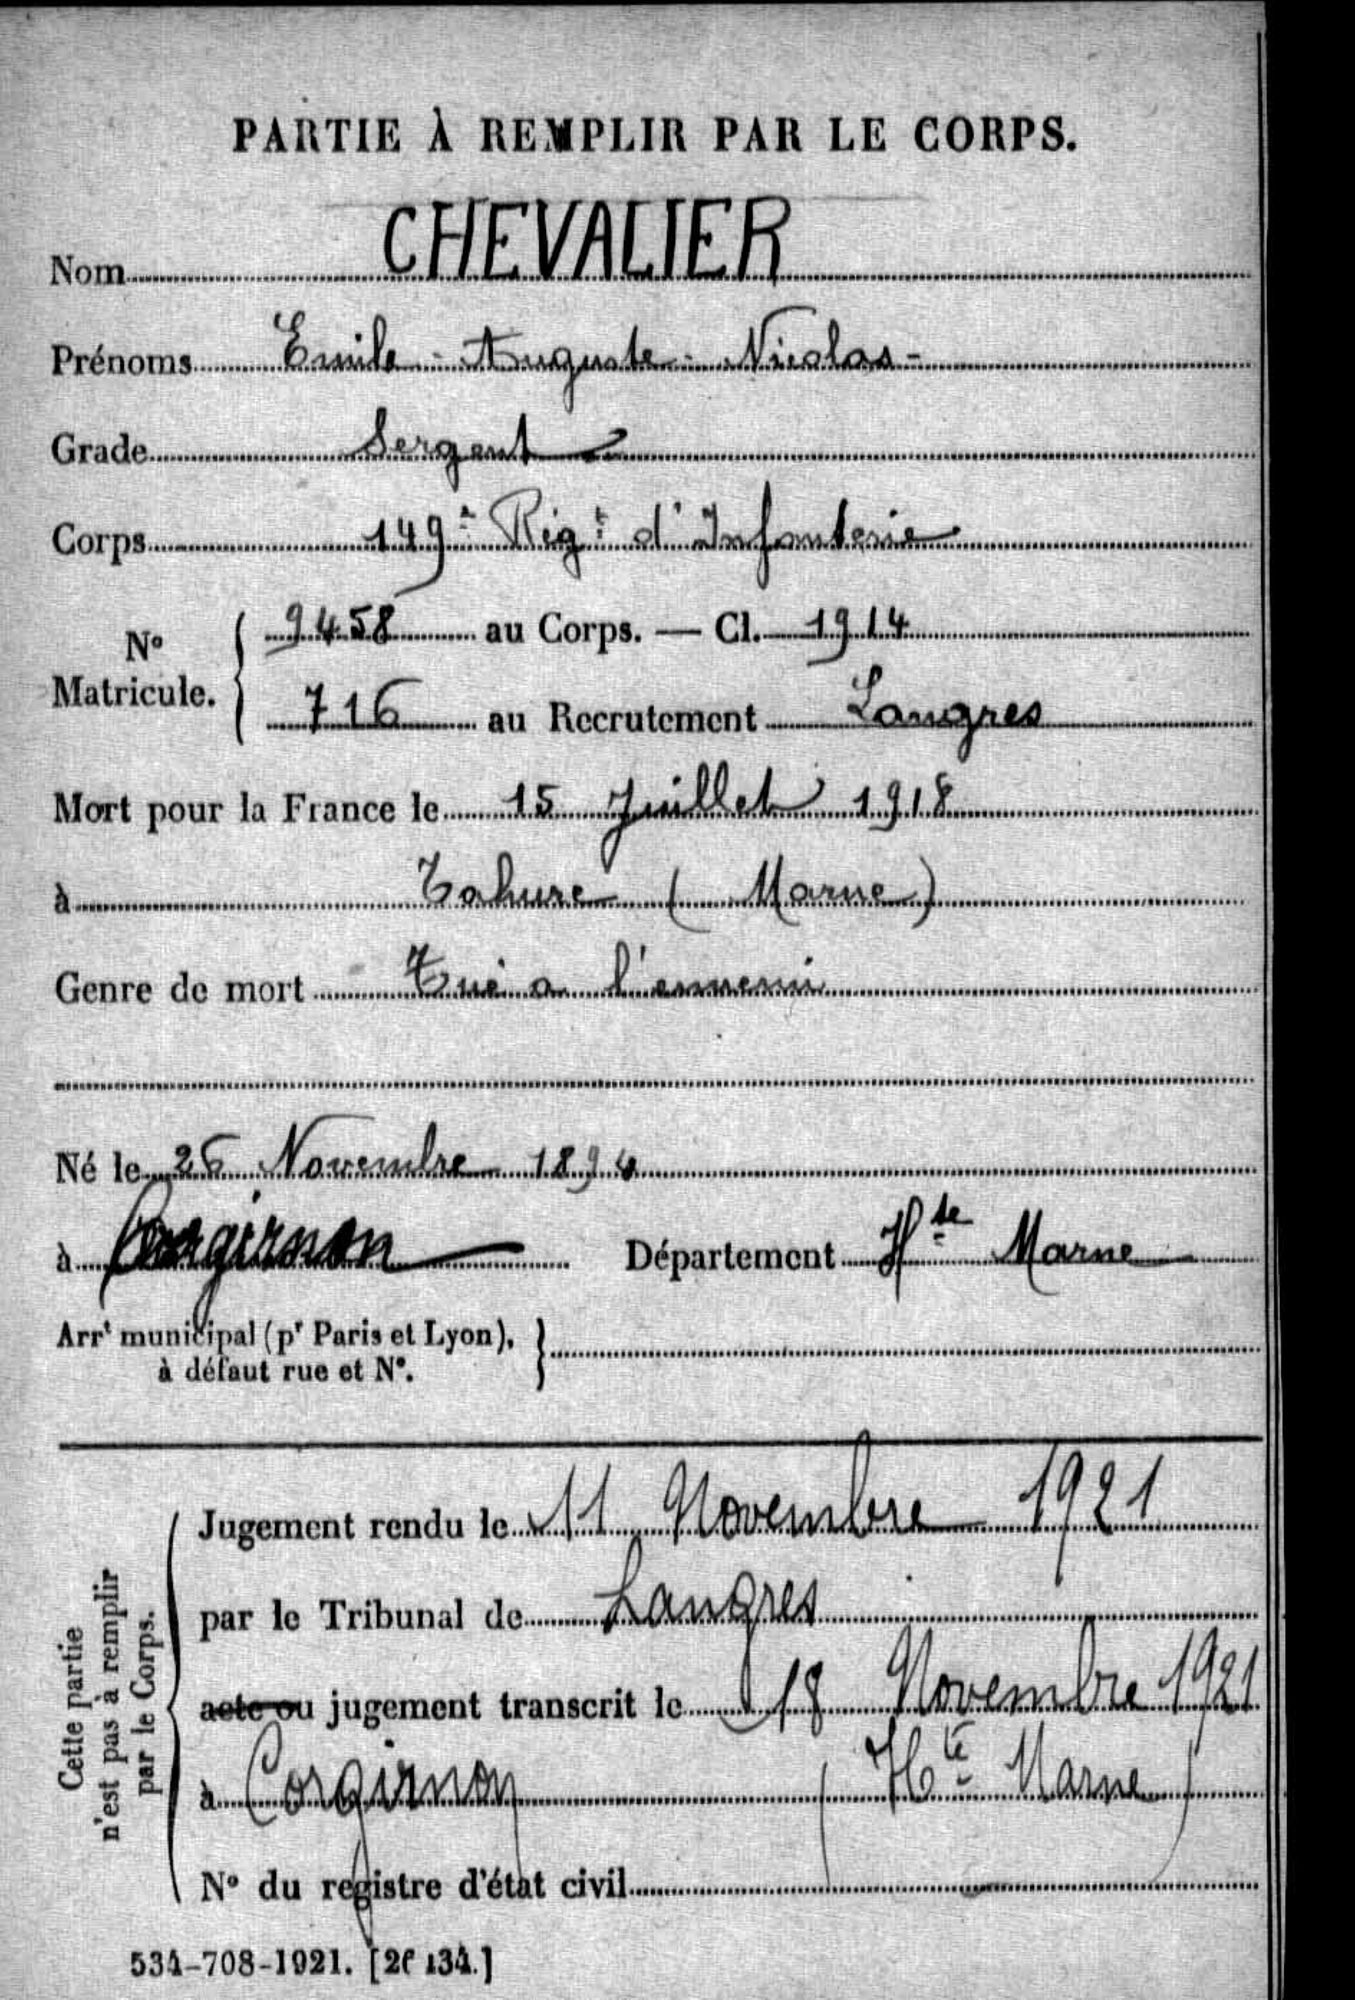 PARTIE À REMPLIR PAR LE CORPS.
Nom CHEVALIER
Prénoms Emile - Auguste - Nicolas -
Grade Sergent
Corps 149e Régt d'Infanterie
No Matricule. { 9458 au Corps. — Cl. 1914
716 au Recrutement Langres
Mort pour la France le 15 Juillet 1918
à Tahure (Marne)
Genre de mort Tué a l'ennemi
Né le 26 Novembre 1894
à Corgirnon Département Hte Marne
Arrt municipal (pr Paris et Lyon), à défaut rue et No. }
Cette partie n'est pas à remplir par le Corps.
Jugement rendu le 11 Novembre 1921
par le Tribunal de Langres
acte ou jugement transcrit le 18 Novembre 1921
à Corgirnon (Hte Marne)
No du registre d'état civil
534-708-1921. [26134.]